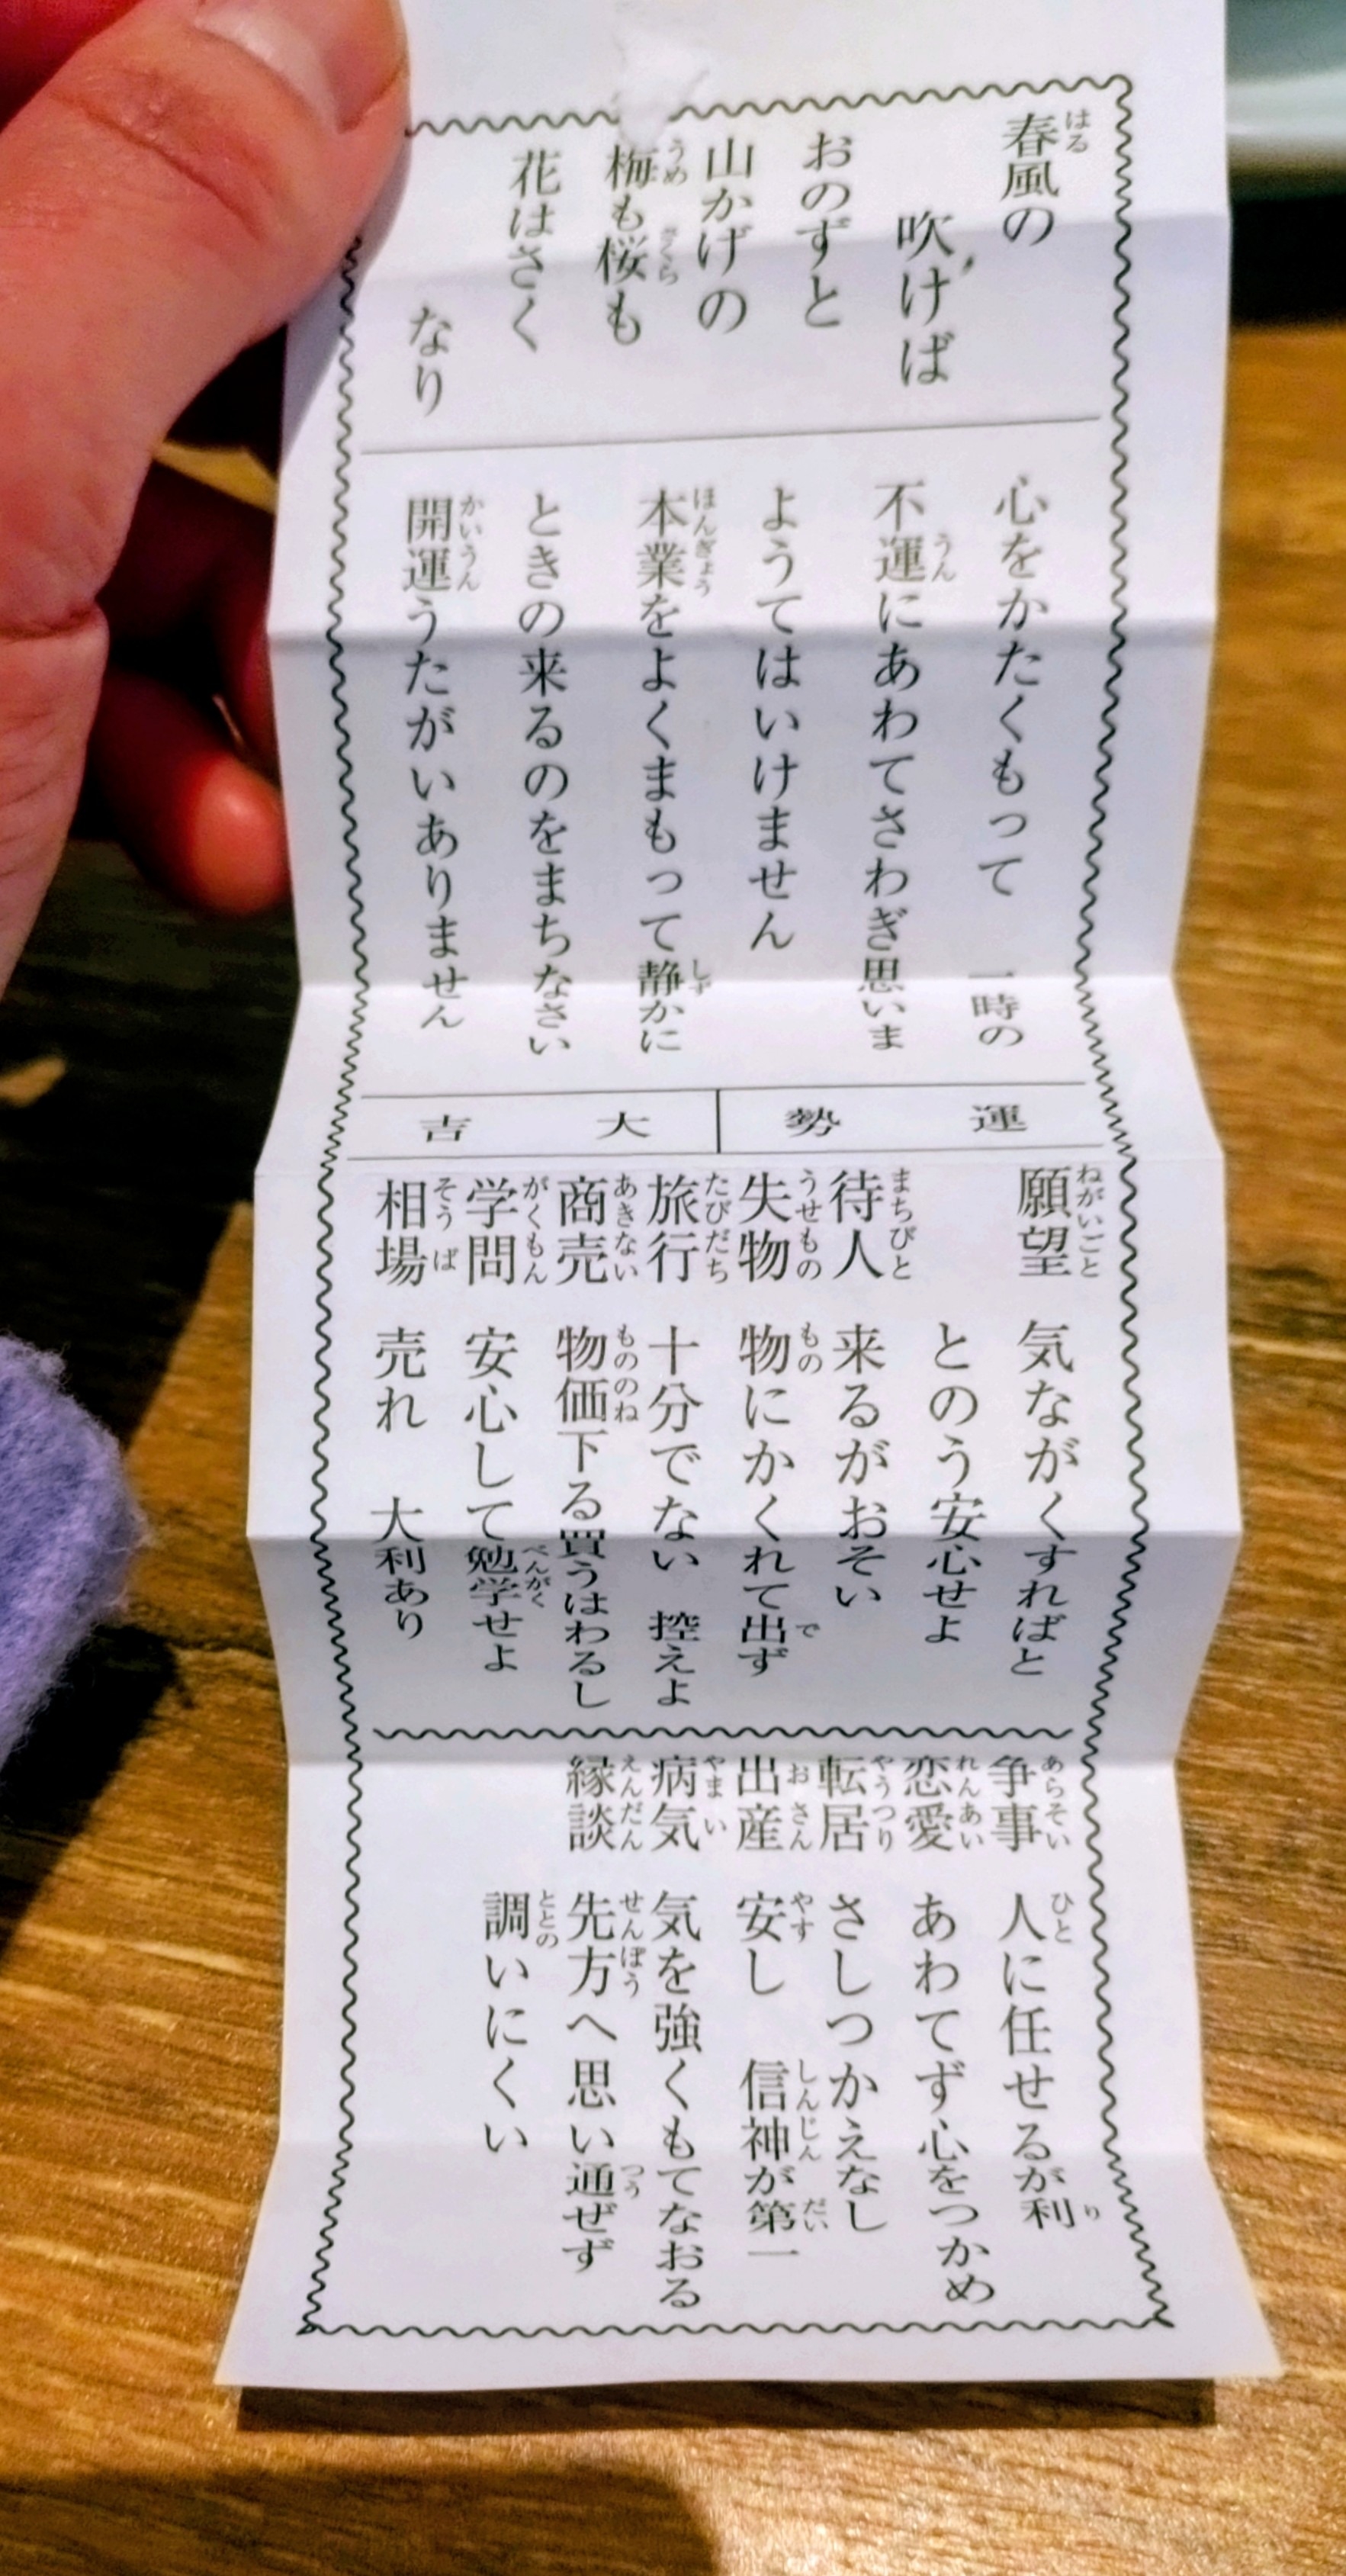 春風の
吹けば
おのずと
山かげの
梅も桜も
花はさく
なり
心をかたくもって 一時の
不運にあわてさわぎ思いま
ようてはいけません
本業をよくまもって静かに
ときの来るのをまちなさい
開運うたがいありません
運勢 大吉
願望 気ながくすればと
とのう安心せよ
待人 来るがおそい
失物 物にかくれて出ず
旅行 十分でない 控えよ
商売 物価下る買うはわるし
学問 安心して勉学せよ
相場 売れ 大利あり
争事 人に任せるが利
恋愛 あわてず心をつかめ
転居 さしつかえなし
出産 安し 信神が第一
病気 気を強くもてなおる
縁談 先方へ思い通ぜず
調いにくい